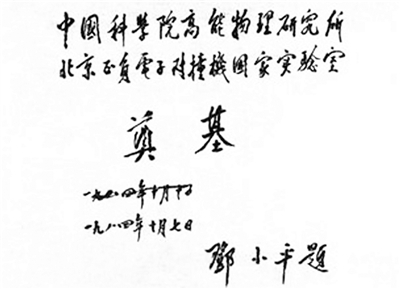 中國科學院高能物理研究所
北京正负電子对撞機國家实验室
奠基
一九八四年十月
一九八四年十月七日
鄧小平題